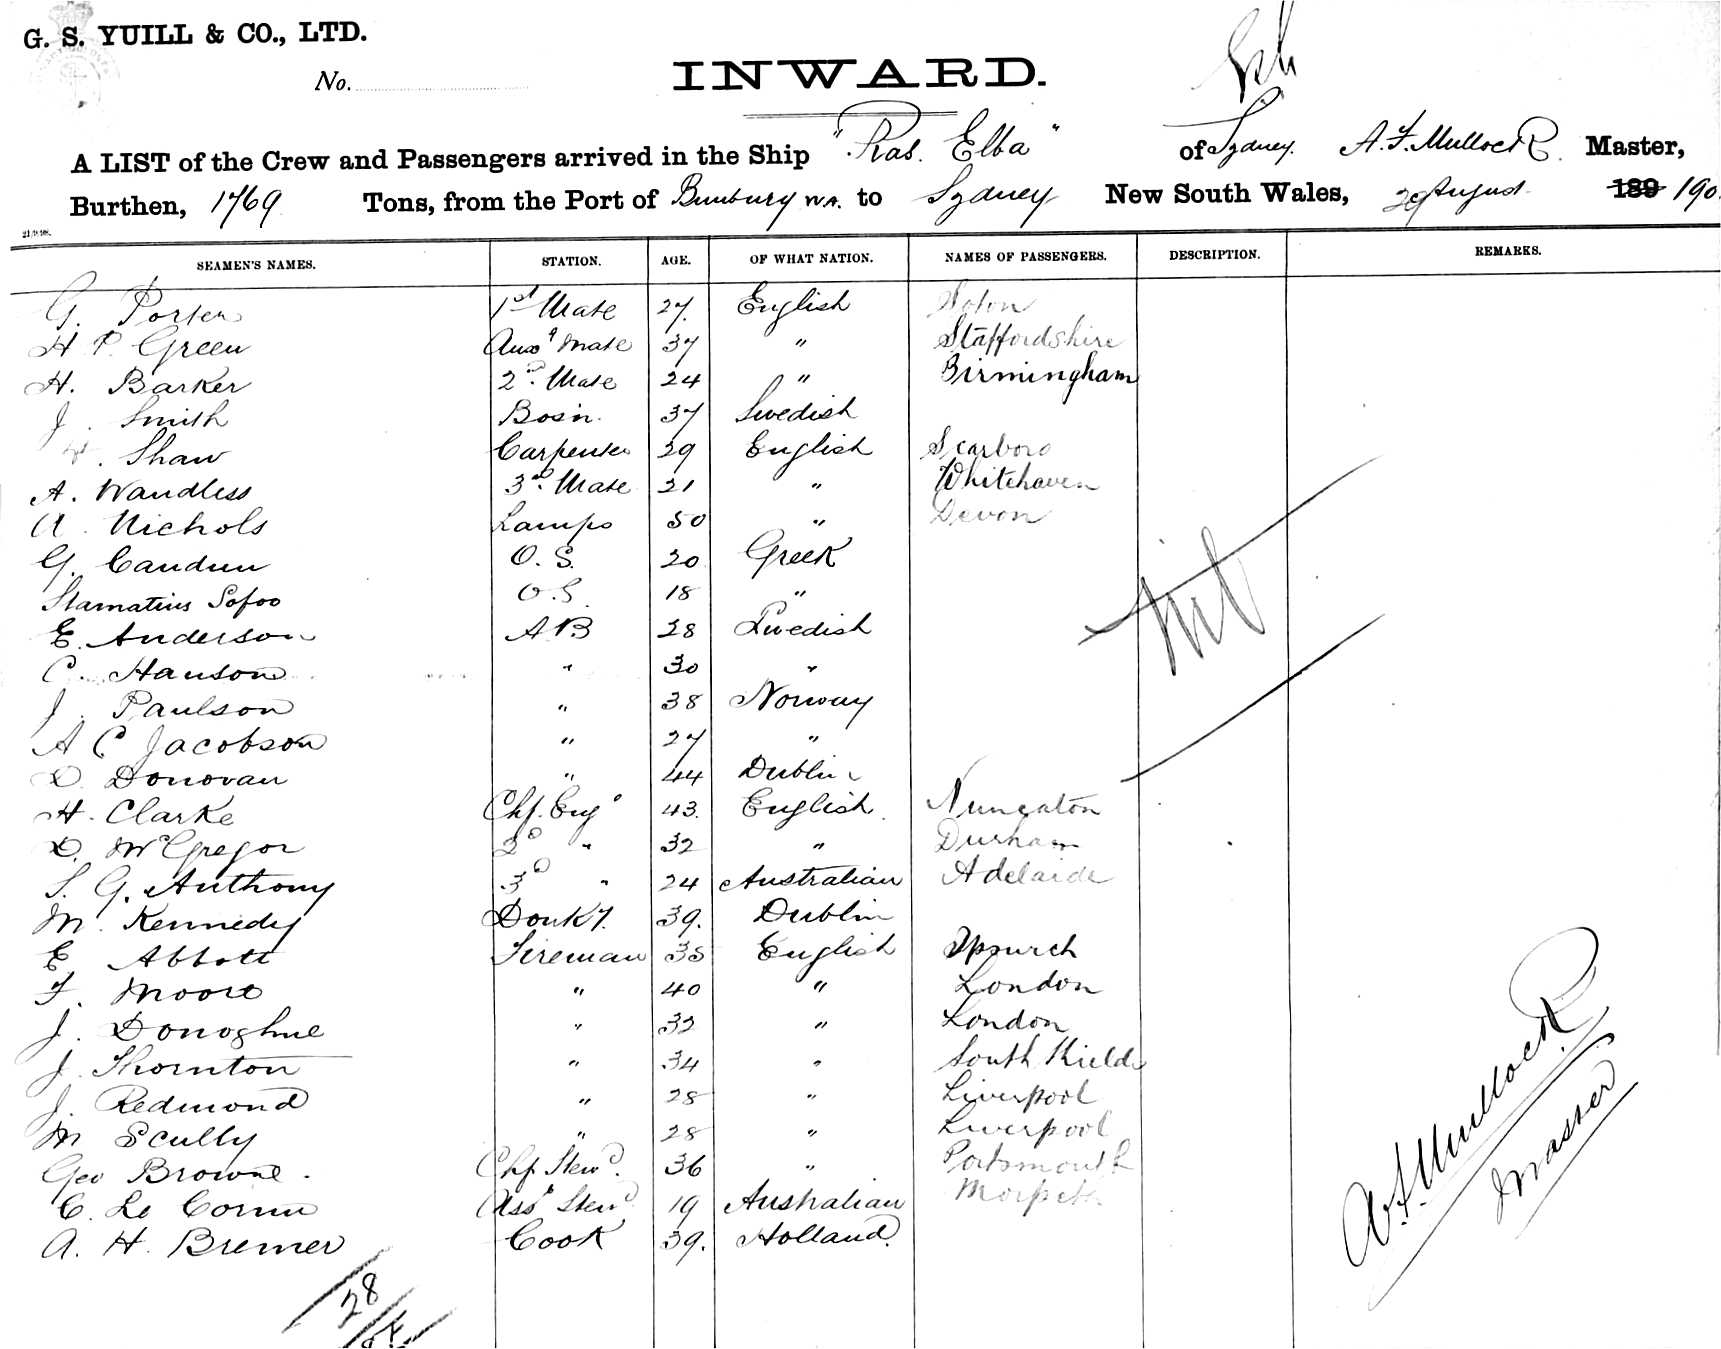 G. S. YUILL & CO., LTD.
No.
INWARD.
A LIST of the Crew and Passengers arrived in the Ship "Ras Elba" of Sydney. A. F. Mullock Master,
Burthen, 1769 Tons, from the Port of Bunbury WA. to Sydney New South Wales, 29 August 189 190
SEAMEN'S NAMES. STATION. AGE. OF WHAT NATION. NAMES OF PASSENGERS. DESCRIPTION. REMARKS.
G. Porter 1st Mate 27. English Soton
H P Green Auxy Mate 37 " Staffordshire
H. Barker 2nd Mate 24 " Birmingham
J. Smith Bosn. 37 Swedish
Shaw Carpenter 29 English Scarboro
A. Wandless 3rd Mate 21 " Whitehaven
A. Nichols Lamps 50 " Devon
G. O.S. 20 Greek
Stamatius Sofoo O.S. 18 "
E. Anderson A.B 28 Swedish
C. Hanson " 30 "
J. Paulson " 38 Norway
A C Jacobson " 27 "
D. Donovan " 44 Dublin
H. Clarke Chf. Eng 43. English Nuneaton
D. McGregor 2d " 32 " Durham
S. G. Anthony 3d " 24 Australian Adelaide
M. Kennedy Donky. 39. Dublin
E Abbott Fireman 35 English Ipswich
F. Moore " 40 " London
J. Donoghue " 32 " London
J. Thornton " 34 " South Shields
J. Redmond " 28 " Liverpool
M Scully " 28 " Liverpool
Geo Browne. Chf Stewd. 36 " Portsmouth
C. Le Cornu Asst Stewd 19 Australian Morpeth
A. H. Bremer Cook 39. Holland.
Nil
A F Mullock
Master
28